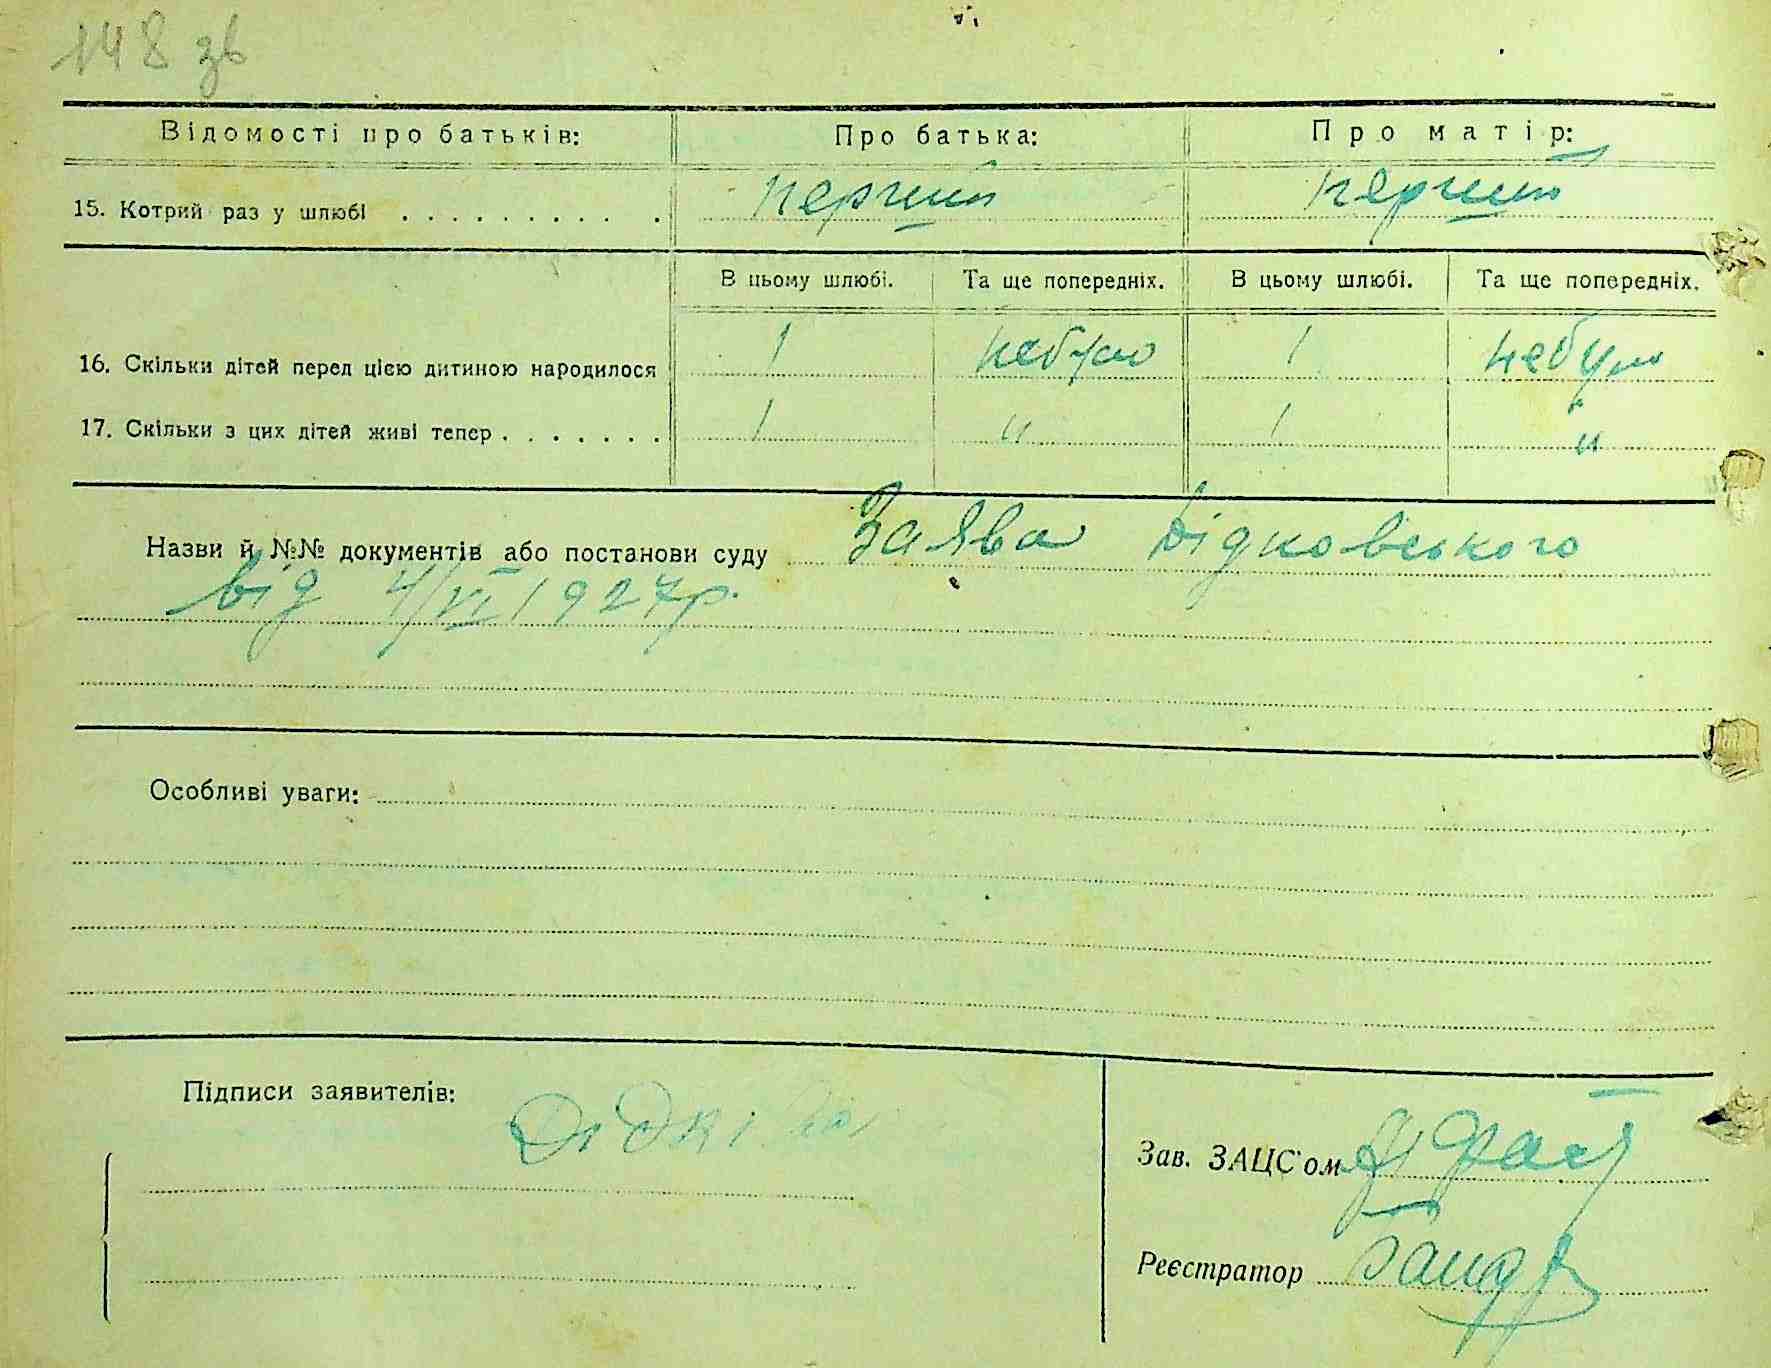 148 зв
Відомості про батьків: Про батька: Про матір:
15. Котрий раз у шлюбі . . . . . . . . . . перший перший
В цьому шлюбі. Та ще попередніх. В цьому шлюбі. Та ще попередніх.
16. Скільки дітей перед цією дитиною народилося 1 небуло 1 небуло
17. Скільки з цих дітей живі тепер . . . . . . . 1 " 1 "
Назви й №№ документів або постанови суду Заява Дідковського
від 4/VI 1927р.
Особливі уваги:
Підписи заявителів:
Зав. ЗАЦС'ом
Реєстратор